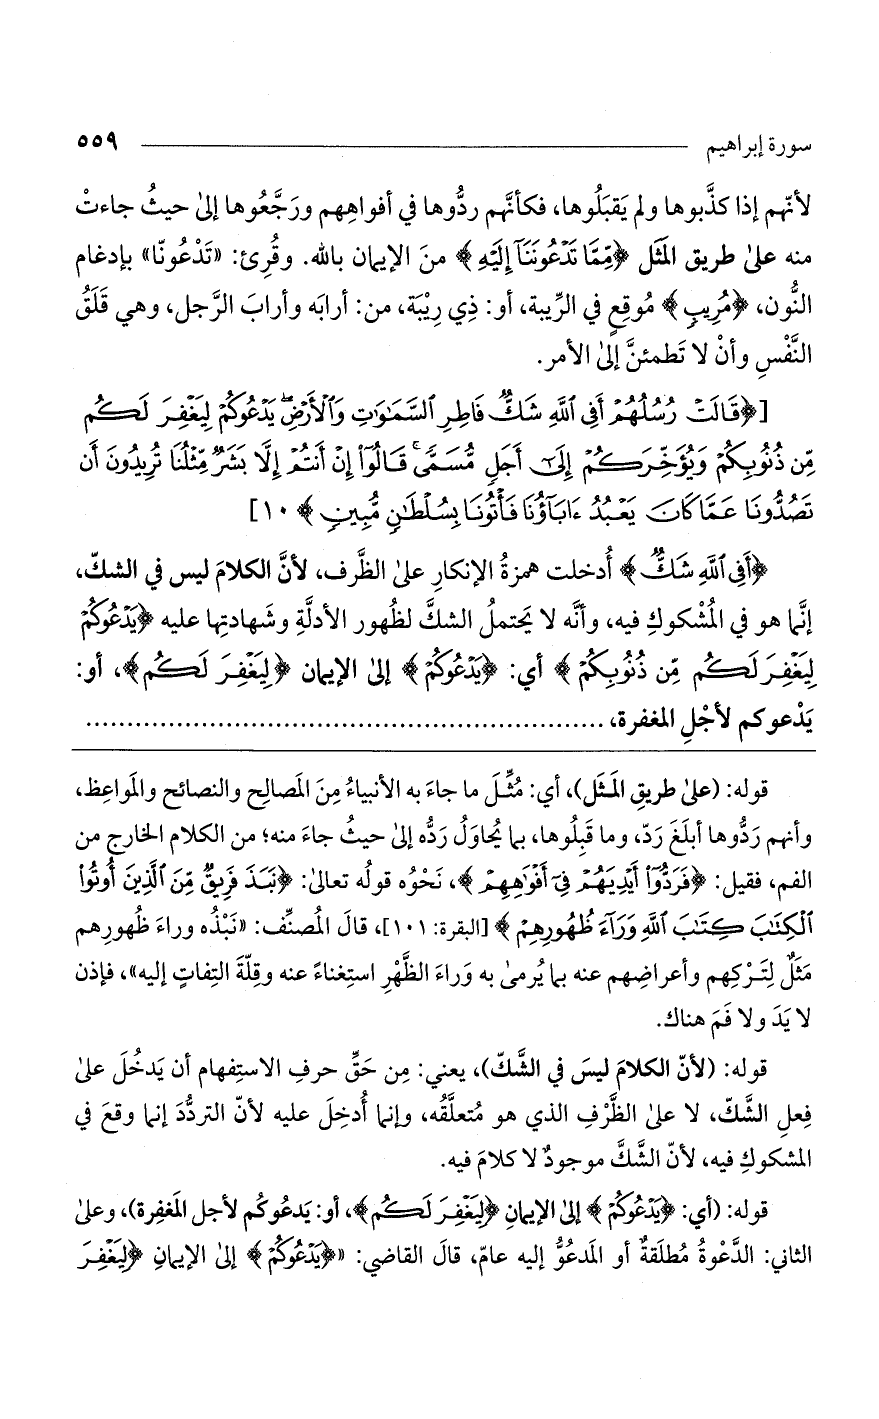 سورة إبراهيم ٥٥٩
لأنّهم إذا كذَّبوها ولم يَقبَلُوها، فكأنَّهم ردُّوها في أفواهِهم ورَجَّعُوها إلىٰ حيثُ جاءتْ
منه علىٰ طريق المَثَل ﴿مِّمَّا تَدْعُونَنَآ إِلَيْهِ﴾ منَ الإيمان بالله. وقُرِئ: «تَدْعُونّا» بإدغام
النُّون، ﴿مُرِيبٍ﴾ مُوقِعٍ في الرِّيبة، أو: ذِي رِيْبَة، من: أرابَه وأرابَ الرَّجل، وهي قَلَقُ
النَّفْسِ وأنْ لا تَطمئنَّ إلىٰ الأمر.
[﴿قَالَتْ رُسُلُهُمْ أَفِى ٱللَّهِ شَكٌّ فَاطِرِ ٱلسَّمَٰوَٰتِ وَٱلْأَرْضِ ۖ يَدْعُوكُمْ لِيَغْفِرَ لَكُم
مِّن ذُنُوبِكُمْ وَيُؤَخِّرَكُمْ إِلَىٰٓ أَجَلٍ مُّسَمًّى ۚ قَالُوٓا۟ إِنْ أَنتُمْ إِلَّا بَشَرٌ مِّثْلُنَا تُرِيدُونَ أَن
تَصُدُّونَا عَمَّا كَانَ يَعْبُدُ ءَابَآؤُنَا فَأْتُونَا بِسُلْطَٰنٍ مُّبِينٍ﴾ ١٠]
﴿أَفِى ٱللَّهِ شَكٌّ﴾ أُدخلت همزةُ الإنكارِ علىٰ الظَّرف، لأنَّ الكلامَ ليس في الشكّ،
إنَّما هو في المُشْكوكِ فيه، وأنَّه لا يَحتملُ الشكَّ لظُهور الأدلَّةِ وشَهادتِها عليه ﴿يَدْعُوكُمْ
لِيَغْفِرَ لَكُم مِّن ذُنُوبِكُمْ﴾ أي: ﴿يَدْعُوكُمْ﴾ إلىٰ الإيمان ﴿لِيَغْفِرَ لَكُم﴾، أو:
يَدْعوكم لأجْلِ المغفرة، ............................................................
قوله: (علىٰ طريقِ المَثَل)، أي: مُثِّلَ ما جاءَ به الأنبياءُ مِنَ المَصالِح والنصائح والمَواعِظ،
وأنهم رَدُّوها أبلَغَ رَدّ، وما قَبِلُوها، بما يُحاوَلُ رَدُّه إلىٰ حيثُ جاءَ منه؛ من الكلام الخارج من
الفم، فقيل: ﴿فَرَدُّوٓا۟ أَيْدِيَهُمْ فِىٓ أَفْوَٰهِهِمْ﴾، نَحْوُه قولُه تعالىٰ: ﴿نَبَذَ فَرِيقٌ مِّنَ ٱلَّذِينَ أُوتُوا۟
ٱلْكِتَٰبَ كِتَٰبَ ٱللَّهِ وَرَآءَ ظُهُورِهِمْ﴾ [البقرة: ١٠١]، قالَ المُصنِّف: «نَبْذُه وراءَ ظُهورِهم
مَثَلٌ لِتَرْكِهم وأعراضِهم عنه بما يُرمىٰ به وَراءَ الظَّهْرِ استِغناءً عنه وقِلّةَ التِفاتٍ إليه»، فإذن
لا يَدَ ولا فَمَ هناك.
قوله: (لأنّ الكلامَ ليسَ في الشَّكّ)، يعني: مِن حَقِّ حرفِ الاستِفهام أن يَدخُلَ علىٰ
فِعلِ الشَّكّ، لا علىٰ الظَّرْفِ الذي هو مُتعلَّقُه، وإنما أُدخِلَ عليه لأنّ التردُّدَ إنما وقعَ في
المشكوكِ فيه، لأنّ الشَّكَّ موجودٌ لا كلامَ فيه.
قوله: (أي: ﴿يَدْعُوكُمْ﴾ إلىٰ الإيمانِ ﴿لِيَغْفِرَ لَكُم﴾، أو: يَدعُوكُم لأجل المَغفِرة)، وعلىٰ
الثاني: الدَّعْوةُ مُطلَقةٌ أو المَدعُوُّ إليه عامّ، قالَ القاضي: «﴿يَدْعُوكُمْ﴾ إلىٰ الإيمانِ ﴿لِيَغْفِرَ